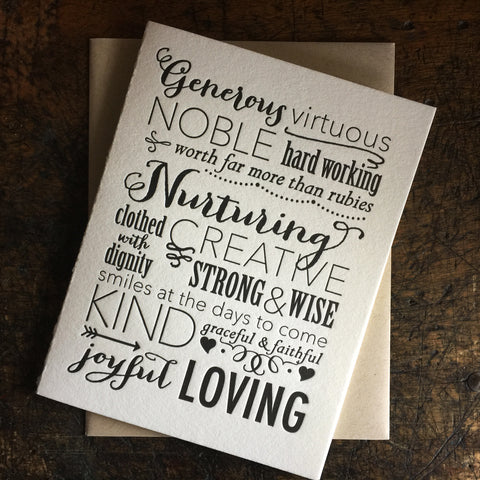 Generous virtuous
NOBLE hard working
worth far more than rubies
Nurturing
clothed with dignity CREATIVE
STRONG & WISE
smiles at the days to come
KIND graceful & faithful
joyful LOVING